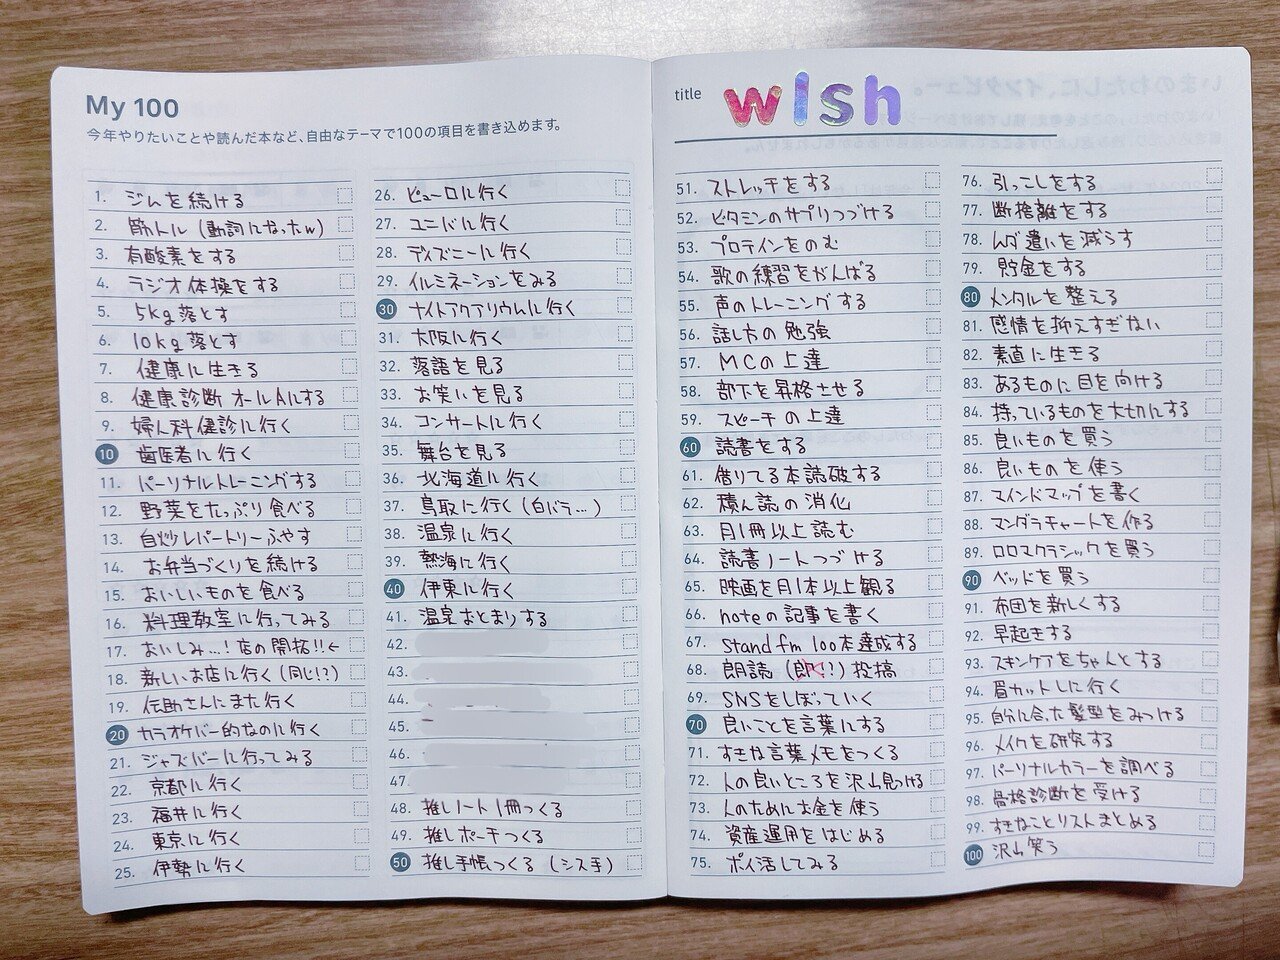 My 100
今年やりたいことや読んだ本など、自由なテーマで100の項目を書き込めます。
title wish
1. ジムを続ける
2. 筋トル (動詞になったw)
3. 有酸素をする
4. ラジオ体操をする
5. 5kg落とす
6. 10kg落とす
7. 健康に生きる
8. 健康診断オールAにする
9. 婦人科健診に行く
10 歯医者に行く
11. パーソナルトレーニングする
12. 野菜をたっぷり食べる
13. 自炊レパートリーふやす
14. お弁当づくりを続ける
15. おいしいものを食べる
16. 料理教室に行ってみる
17. おいしみ…!店の開拓!!←
18. 新しいお店に行く(同じ!?)
19. 伝助さんにまた行く
20 カラオケバー的なのに行く
21. ジャズバーに行ってみる
22. 京都に行く
23. 福井に行く
24. 東京に行く
25. 伊勢に行く
26. ピューロに行く
27. ユニバに行く
28. ディズニーに行く
29. イルミネーションをみる
30 ナイトアクアリウムに行く
31. 大阪に行く
32. 落語を見る
33. お笑いを見る
34. コンサートに行く
35. 舞台を見る
36. 北海道に行く
37. 鳥取に行く(白バラ…)
38. 温泉に行く
39. 熱海に行く
40 伊東に行く
41. 温泉おとまりする
42.
43.
44.
45.
46.
47.
48. 推しノート1冊つくる
49. 推しポーチつくる
50 推し手帳つくる (シス手)
51. ストレッチをする
52. ビタミンのサプリつづける
53. プロテインをのむ
54. 歌の練習をがんばる
55. 声のトレーニングする
56. 話し方の勉強
57. MCの上達
58. 部下を昇格させる
59. スピーチの上達
60 読書をする
61. 借りてる本読破する
62. 積ん読の消化
63. 月1冊以上読む
64. 読書ノートつづける
65. 映画を月1本以上観る
66. noteの記事を書く
67. stand fm 100本達成する
68. 朗読 (即<!?) 投稿
69. SNSをしぼっていく
70 良いことを言葉にする
71. すきな言葉メモをつくる
72. 人の良いところを沢山見つける
73. 人のためにお金を使う
74. 資産運用をはじめる
75. ポイ活してみる
76. 引っこしをする
77. 断捨離をする
78. ムダ遣いを減らす
79. 貯金をする
80 メンタルを整える
81. 感情を抑えすぎない
82. 素直に生きる
83. あるものに目を向ける
84. 持っているものを大切にする
85. 良いものを買う
86. 良いものを使う
87. マインドマップを書く
88. マンダラチャートを作る
89. ロロマクラシックを買う
90 ベッドを買う
91. 布団を新しくする
92. 早起きする
93. スキンケアをちゃんとする
94. 眉カットしに行く
95. 自分に合った髪型をみつける
96. メイクを研究する
97. パーソナルカラーを調べる
98. 骨格診断を受ける
99. すきなことリストまとめる
100 沢山笑う